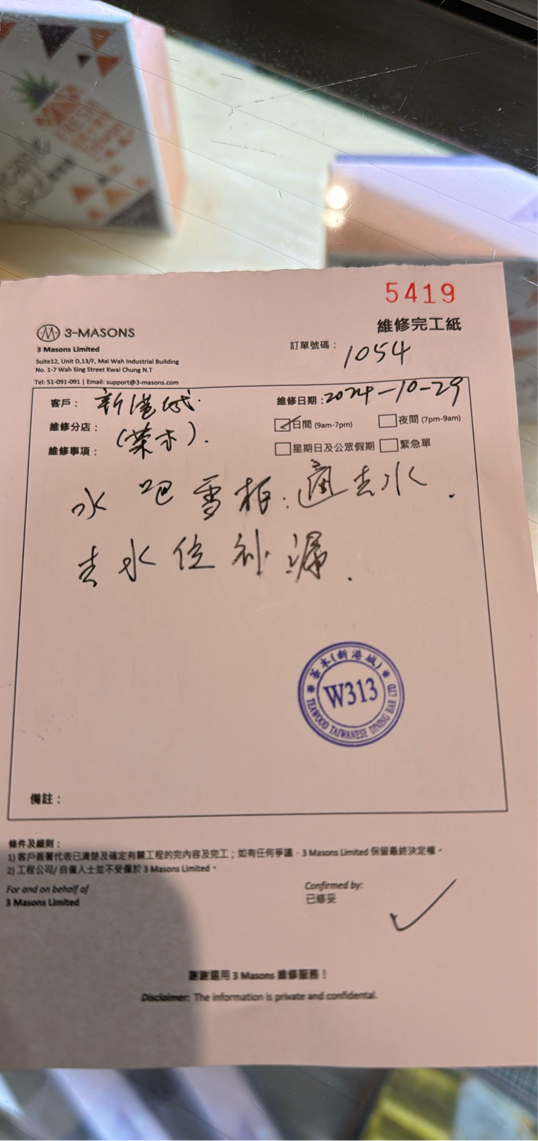 5419
3-MASONS
維修完工紙
3 Masons Limited
訂單號碼：
1054
Suite12, Unit D,13/F, Mai Wah Industrial Building
No. 1-7 Wah Sing Street Kwai Chung N.T
Tel: 51-091-091 | Email: support@3-masons.com
客戶： 新港城.
維修日期：2024-10-29
維修分店： (茶木).
日間 (9am-7pm) 夜間 (7pm-9am)
維修事項：
星期日及公眾假期 緊急單
水吧雪柜: 通去水.
去水位补漏.
茶木(新港城)
W313
TEAWOOD TAIWANESE DINING BAR LTD
備註：
條件及細則：
1) 客戶簽署代表已清楚及確定有關工程的完內容及完工；如有任何爭議，3 Masons Limited 保留最終決定權。
2) 工程公司/自僱人士並不受僱於 3 Masons Limited。
For and on behalf of
3 Masons Limited
Confirmed by:
已修妥
謝謝選用 3 Masons 維修服務！
Disclaimer: The information is private and confidental.